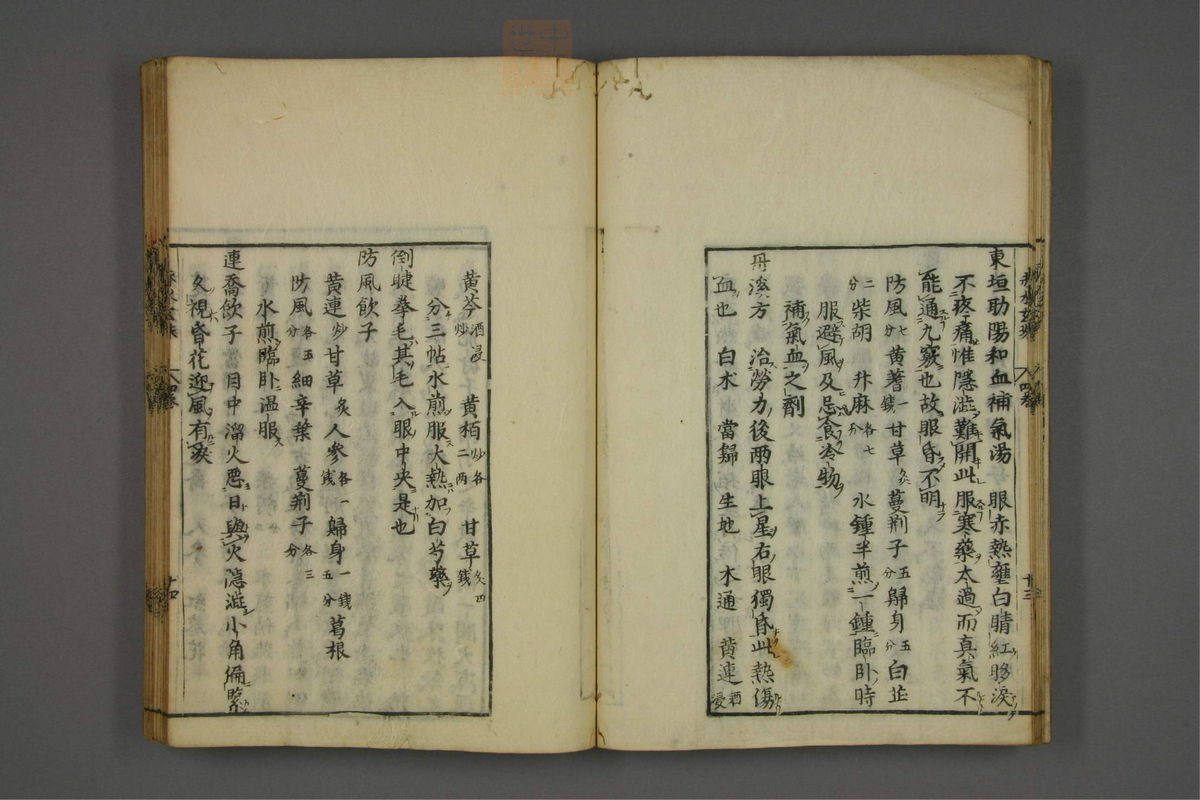 東垣助陽和血補氣湯 眼赤熱壅白睛紅眵淚
不疼痛惟隱澁難開此服寒藥太過而真氣不
能通九竅也故眼昏不明
防風七分 黄蓍一錢 甘草炙 蔓荊子五分 歸身五分 白芷
二分 柴胡 升麻各七分 水鍾半煎一鍾臨卧時
服避風及忌食冷物
補氣血之劑
丹溪方 治勞力後兩眼上星右眼獨昏此熱傷
血也 白朮 當歸 生地 木通 黄連酒浸
黄芩酒浸炒 黄栢炒各二兩 甘草炙四錢
分三帖水煎服大熱加白芍藥
倒睫拳毛其毛入眼中央是也
防風飲子
黄連炒 甘草炙 人參各一錢 歸身一錢五分 葛根
防風各五分 細辛葉 蔓荊子各三分
水煎臨卧温服
連喬飲子 目中溜火惡日與火隱澁小角偏緊
久視昏花迎風有淚
四卷 十三
四卷 十四